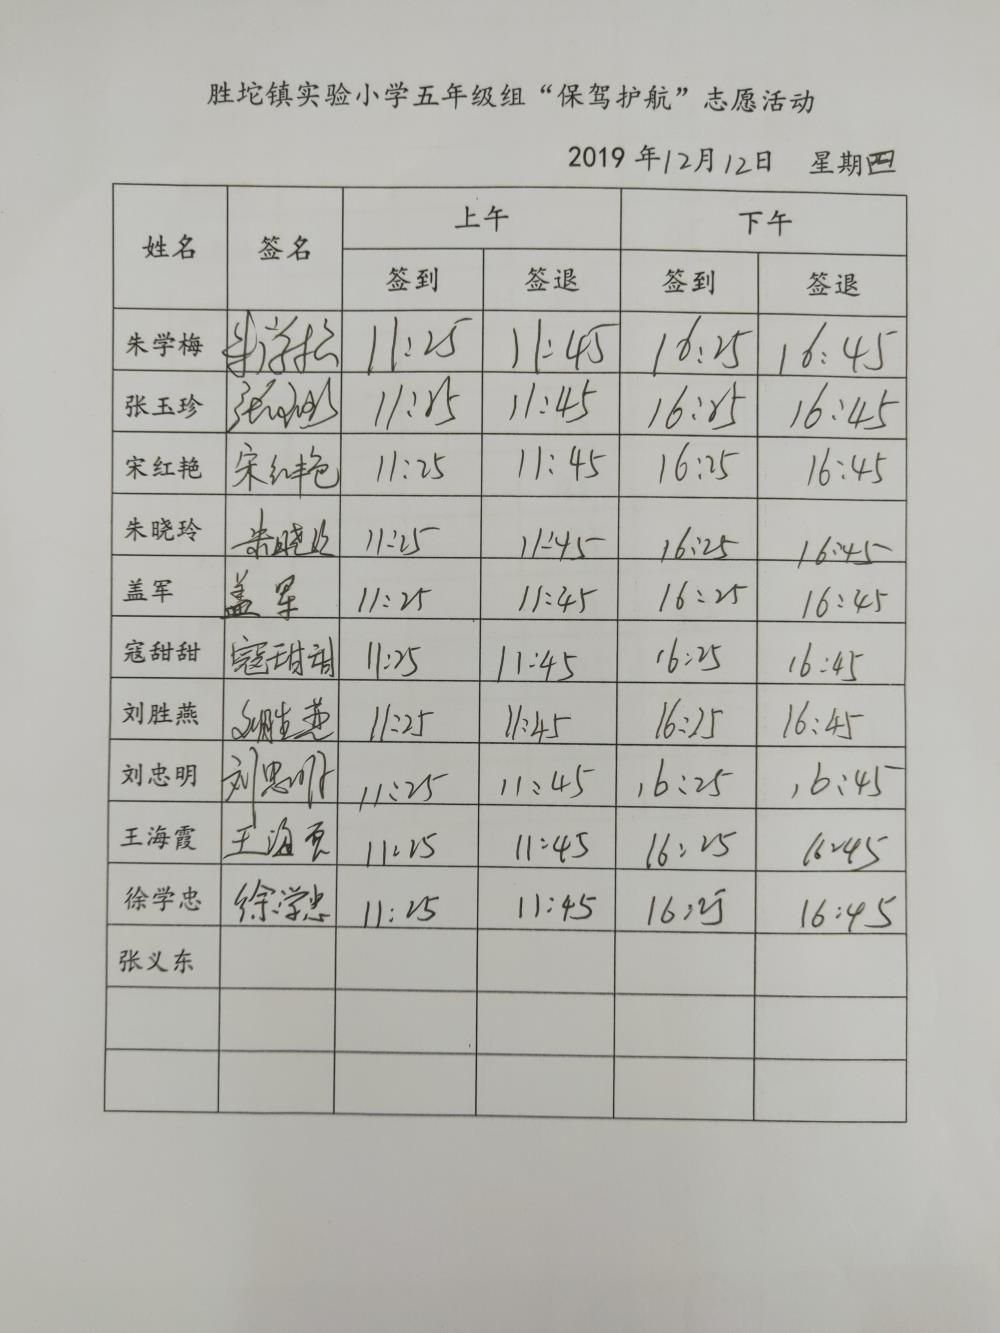 胜坨镇实验小学五年级组“保驾护航”志愿活动
2019 年12月12日 星期四
姓名 签名 上午 下午
签到 签退 签到 签退
朱学梅 朱学梅 11:25 11:45 16:25 16:45
张玉珍 张玉珍 11:25 11:45 16:25 16:45
宋红艳 宋红艳 11:25 11:45 16:25 16:45
朱晓玲 朱晓玲 11:25 11:45 16:25 16:45
盖军 盖军 11:25 11:45 16:25 16:45
寇甜甜 寇甜甜 11:25 11:45 16:25 16:45
刘胜燕 刘胜燕 11:25 11:45 16:25 16:45
刘忠明 刘忠明 11:25 11:45 16:25 16:45
王海霞 王海霞 11:25 11:45 16:25 16:45
徐学忠 徐学忠 11:25 11:45 16:25 16:45
张义东